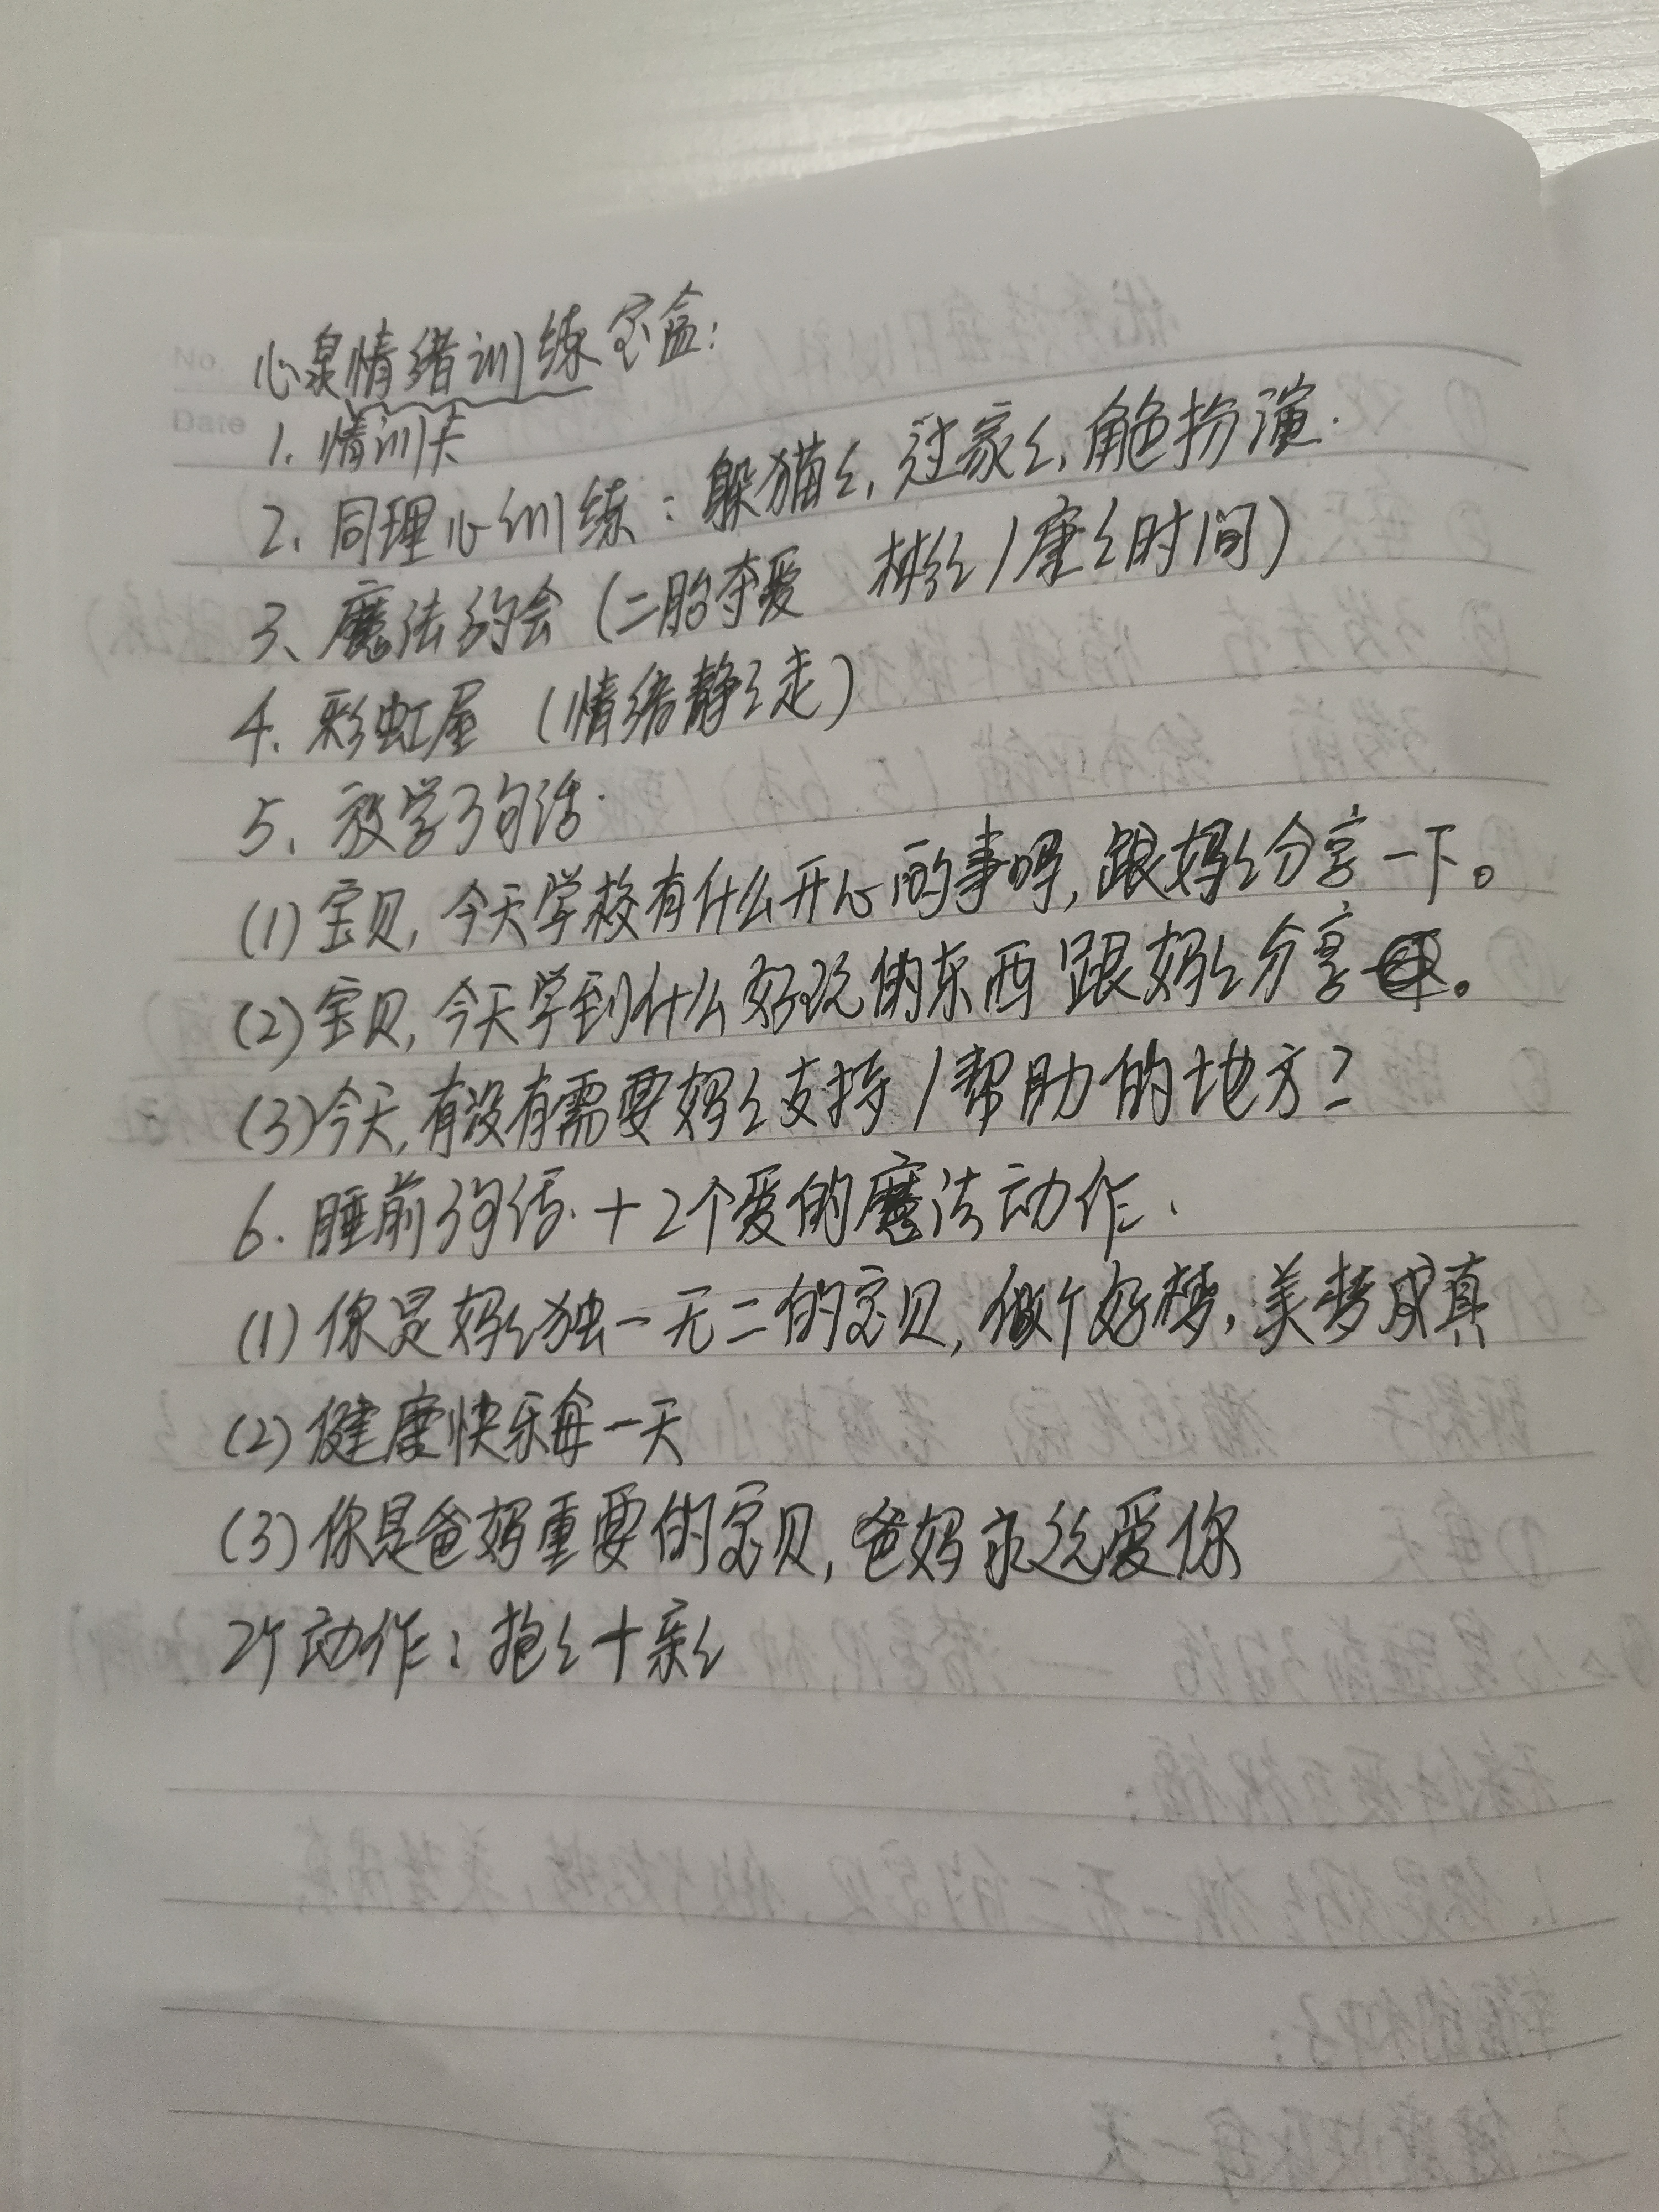 No.
心泉情绪训练宝盒:
Date
1. 情训卡
2. 同理心训练:躲猫々,过家々,角色扮演.
3、魔法约会(二胎夺爱 彬々/康々时间)
4. 彩虹屋(情绪静々走)
5、放学3句话.
(1)宝贝,今天学校有什么开心的事吗,跟妈々分享一下。
(2)宝贝,今天学到什么好玩的东西跟妈々分享。
(3)今天,有没有需要妈々支持/帮助的地方?
6. 睡前3句话.+2个爱的魔法动作.
(1)你是妈々独一无二的宝贝,做个好梦,美梦成真
(2)健康快乐每一天
(3)你是爸妈重要的宝贝,爸妈永远爱你
2个动作:抱々+亲々